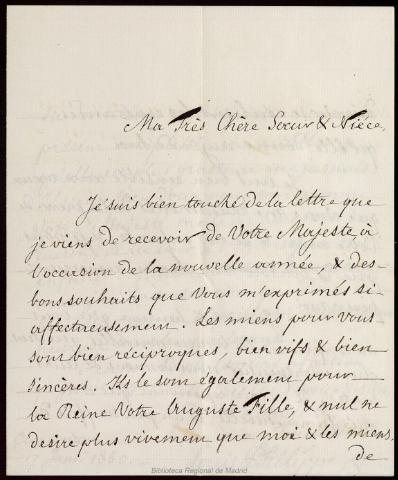 Ma Très Chère Sœur & Niéce,
Je suis bien touché de la lettre que
je viens de recevoir de Votre Majesté à
l'occasion de la nouvelle année, & des
bons souhaits que Vous m'exprimés si
affectueusement. Les miens pour Vous
sont bien réciproques, bien vifs & bien
sincères. Ils le sont également pour
la Reine Votre Auguste Fille, & nul ne
desire plus vivement que moi & les miens,
de
Biblioteca Regional de Madrid